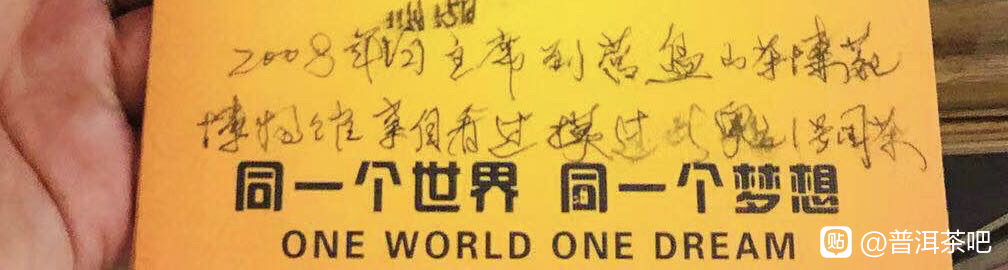 2008年胡主席到营盘山茶博苑
博物馆亲自看过摸过此奥运国茶
同一个世界 同一个梦想
ONE WORLD ONE DREAM
贴 @普洱茶吧